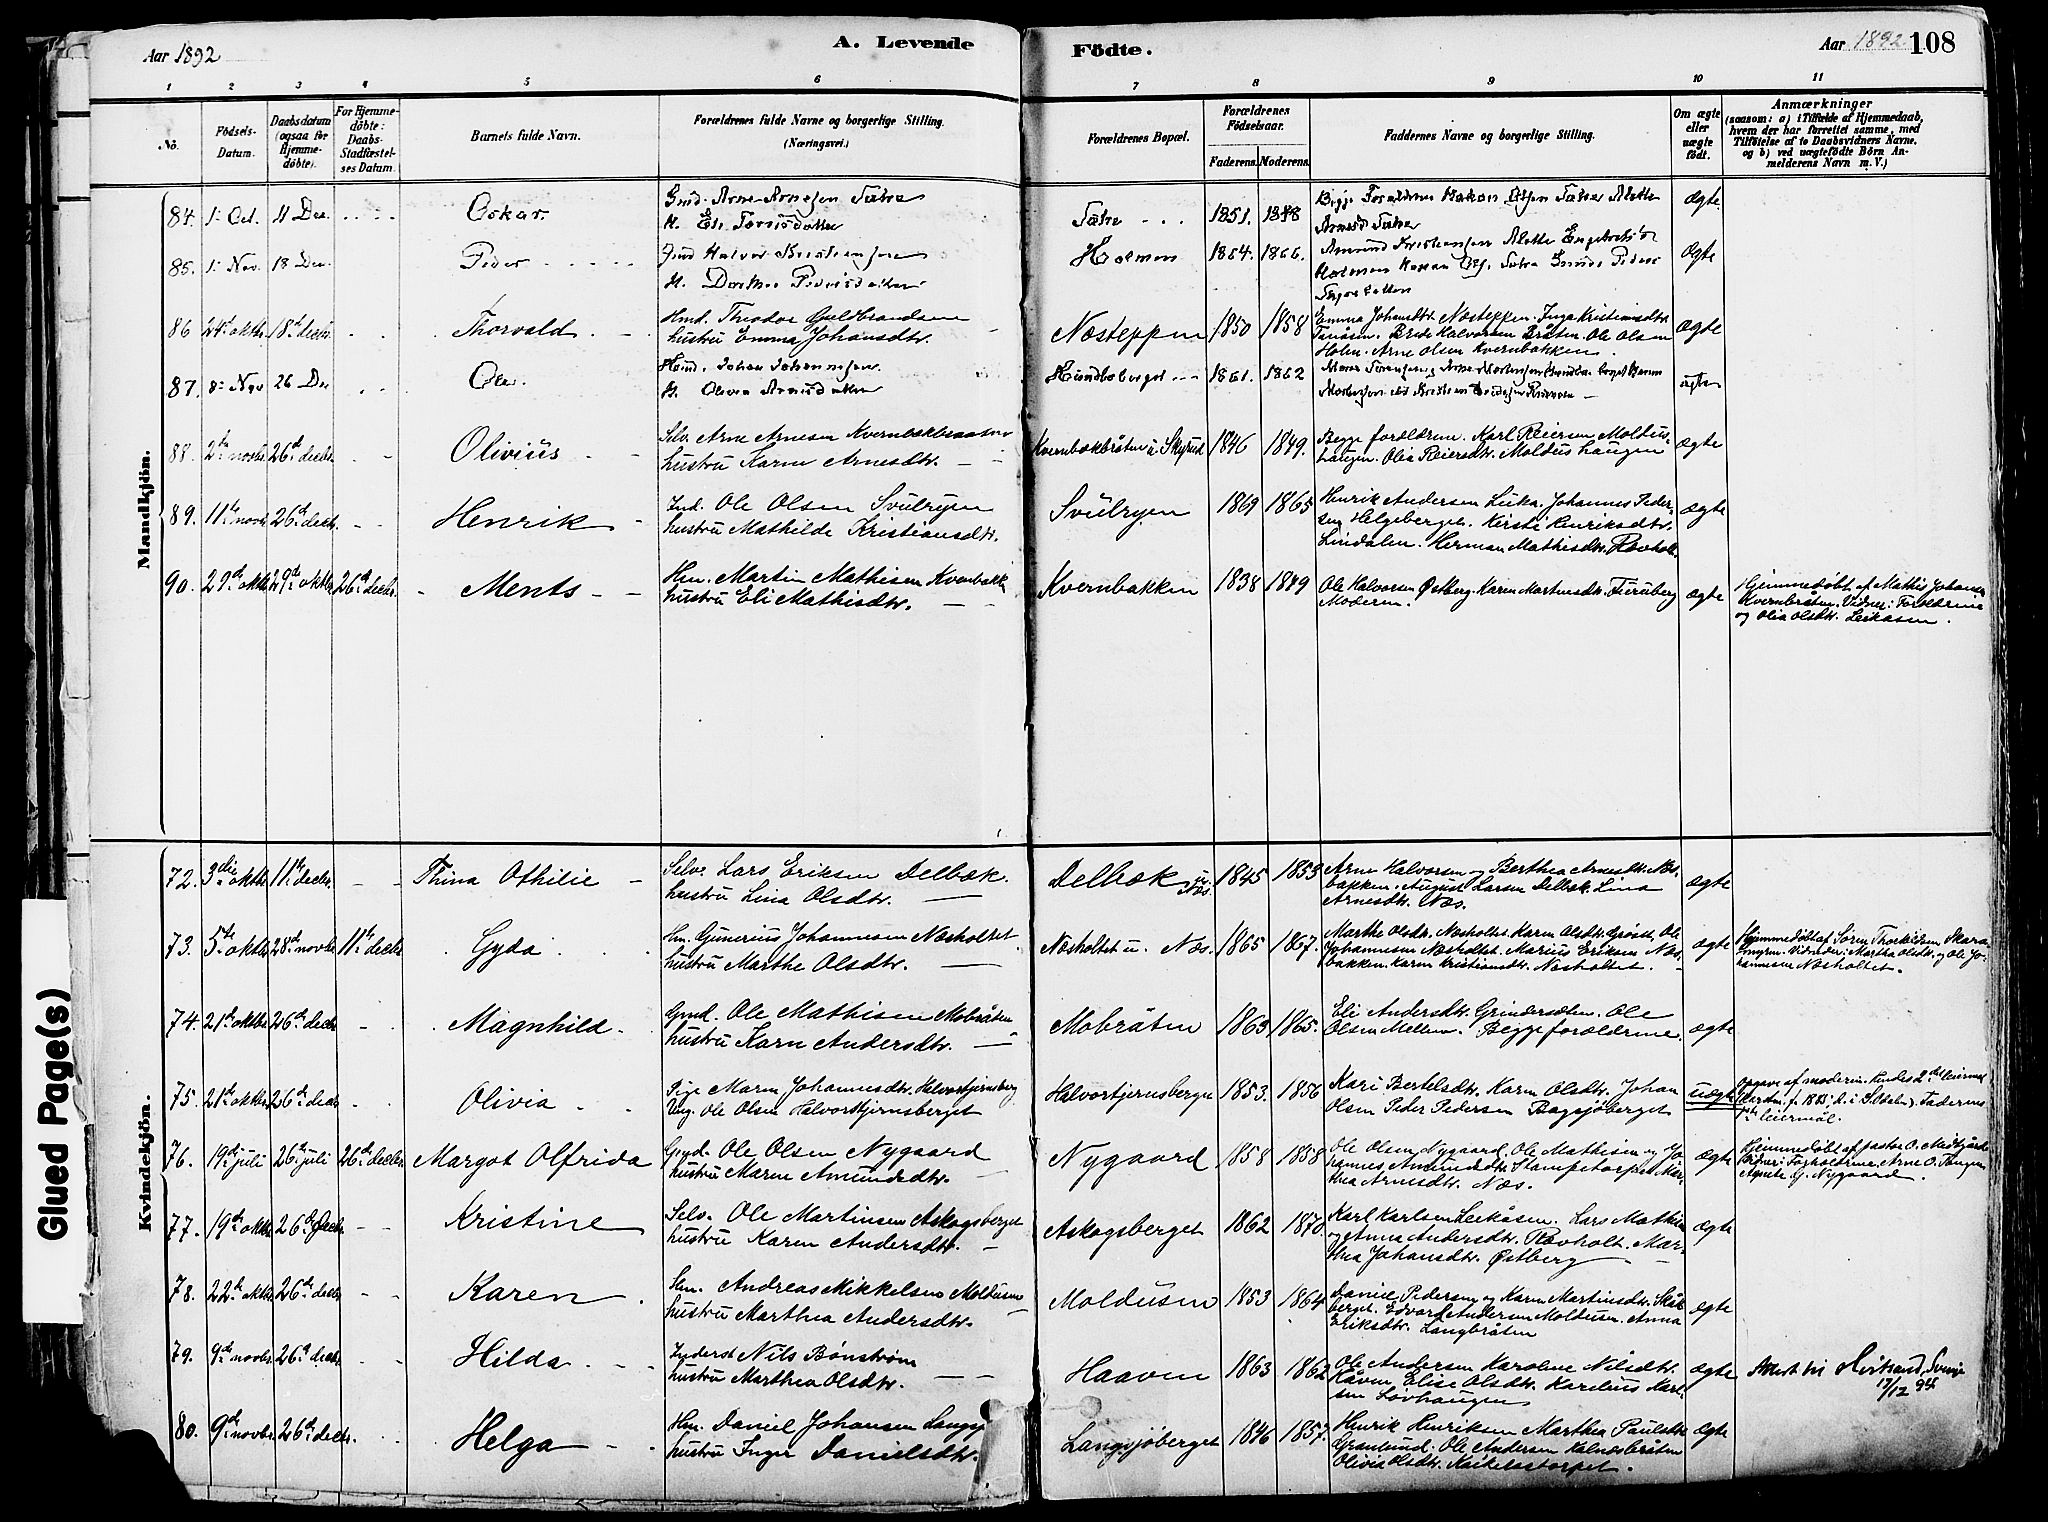 Aar 1892
A. Levende
Födte.
Aar 1892 108
1 2 3 4 5 6 7 8 9 10 11
No.
Födsels-Datum.
Daabsdatum (ogsaa for Hjemme-döbte).
For Hjemme-döbte: Daabs-Stadfæstel-ses Datum.
Barnets fulde Navn.
Forældrenes fulde Navne og borgerlige Stilling.
(Næringsvei.)
Forældrenes Bopæl.
Forældrenes Födselsaar.
Faderens. Moderens.
Faddernes Navne og borgerlige Stilling.
Om ægte eller uægte födt.
Anmærkninger
(saasom: a) i Tilfælde af Hjemmedaab, hvem der har forrettet samme, med Tilföielse af to Daabsvidners Navne, og b) ved uægtefödte Börn An-melderens Navn m. V.)
Mandkjön.
84. 1. Oct. 11 Dec. Oskar. Arne Arnesen Sætre
Sætre 1851. ægte.
85. 1. Nov. 18 Dec. Peder Halvor Kristiansen
Holmen 1864. 1866. ægte
86 24de oktbr. 18de decbr. Thorvald Theodor Guldbrandsen
hustru Emma Johansdtr.
Næsteppen 1850 1858 Emma Johansdtr. Næsteppen. Inga Kristiansdtr.
Brede Halvorsen Bråten. Ole Olsen
Holm. Arne Olsen Kvernbakken. ægte
87. 8. Nov 26 Dec Ole. Johan Johannesen
H. Olivia Arnesdatter
Hundboberget 1861. 1862 ægte
88. 2den novbr. 26de decbr. Olivius Selv. Arne Arnesen Kvernbækbraaten
hustru Karen Arnesdtr.
Kvernbækbråten u. Skyrud 1846 1849. Begge forældrene. Karl Reiersen Moldus-
haugen. Olia Reiersdtr. Moldushaugen ægte
89. 11te novbr. 26de decbr. Henrik Ind. Ole Olsen Svulryen
hustru Mathilde Kristiansdtr.
Svulryen 1869 1865 Henrik Andersen Leika. Johannes Peder-
sen Helgeberget. Kersti Henriksdtr.
Lindalen. Herman Mathisdtr. Rovholt. ægte
90. 29de oktbr. 29de oktbr. 26de decbr. Ments Hm. Martin Mathisen Kvernbakken
hustru Eli Mathisdtr.
Kvernbakken 1838 1849 Ole Halvorsen Østberg. Karen Martinsdtr. Furuberg
Moderen. ægte
Hjemmedøbt af Mathis Johansen
Kvernbråten. Vidner: Forældrene
og Olia Olsdtr. Leikåsen.
Kvindekjön.
72. 3die oktbr. 11te decbr. Thina Othilie Selv. Lars Eriksen Delbæk.
hustru Lina Olsdtr.
Delbæk u. Næs. 1845 1853 Arne Halvorsen og Berthea Arnesdtr. Næs-
bakken. August Larsen Delbæk. Lina
Arnesdtr. Næs. ægte
73. 5te oktbr. 28de novbr. 11te decbr. Gyda Hm. Gunerius Johannesen Næsholtet.
hustru Marthe Olsdtr.
Næsholtet u. Næs. 1865 1867. Marthe Olsdtr. Næsholtet. Karen Olsdtr. Ole
Johannesen Næsholtet. Marius Eriksen Næs-
bakken. Karen Kristiansdtr. Næsholtet. ægte
Hjemmedøbt af Søren Thorkildsen Skara-
myren. Vidner: Martha Olsdtr. og Ole Jo-
hannesen Næsholtet.
74. 21de oktbr. 26de decbr. Magnhild. Gmd. Ole Mathisen Mobråten
hustru Karen Andersdtr.
Mobråten 1863 1865. Eli Andersdtr. Grindersæten. Ole
Olsen Mellem. Begge forældrene. ægte
75. 21de oktbr. 26de decbr. Olivia Pige Maren Johannesdtr. Halvorstjernsberg
Ung. Ole Olsen Halvorstjernsberget
Halvorstjernsberget 1853. 1856 Kari Bertelsdtr. Karen Olsdtr. Johan
Olsen Peder Pedersen Bagsjøberget uægte
opgave af moderen. Hendes 2det leiermål
Faderens
1ste leiermål.
76. 19de juli 26de juli 26de decbr. Margot Olfrida Gryd. Ole Olsen Nygaard
hustru Maren Amundsdtr.
Nygaard 1858 1858 Ole Olsen Nygaard. Ole Mathisen og Jo-
hannes Amundsdtr. Stampetorpet. Mar-
thea Arnesdtr. Næs. ægte
Hjemmedøbt af pastor O. Midtgårde
Vidner: Forældrene. Arne O. Tangen
Agnete G. Nygaard.
77. 19de oktbr. 26de Decbr. Kristine Selv. Ole Martinsen Askogsberget
hustru Karen Andersdtr.
Askogsberget 1862 1870 Karl Karlsen Leikåsen. Lars Mathisen
og Anna Andersdtr. Rovholt. Mar-
thea Johansdtr. Østberg ægte
78. 22de oktbr. 26de decbr. Karen Hm. Andreas Mikkelsen Moldusen
hustru Marthea Andersdtr.
Moldusen 1853 1864 Daniel Pedersen og Karen Martinsdtr. Skåt-
berget. Edvard Andersen Moldusen. Anna
Eriksdtr. Langbråten ægte
79. 9de novbr. 26de decbr. Hilda Inderst Nils Bönström
hustru Marthea Olsdtr.
Haaven 1863 1862 Ole Andersen Karoline Nilsdtr.
Håven. Elise Olsdtr. Karelius Karl-
sen Løvhaugen ægte
Attest til
17/12 94
80. 9de novbr. 26de decbr. Helga Hm. Daniel Johansen Langsj
hustru Inger Danielsdtr.
Langsjöberget 1846 1857. Henrik Henriksen Marthea Paulsdtr.
Granlund. Ole Andersen Kalnæsbråten
Olivia Olsdtr. Kaikelastorpet. ægte
Glued Page(s)